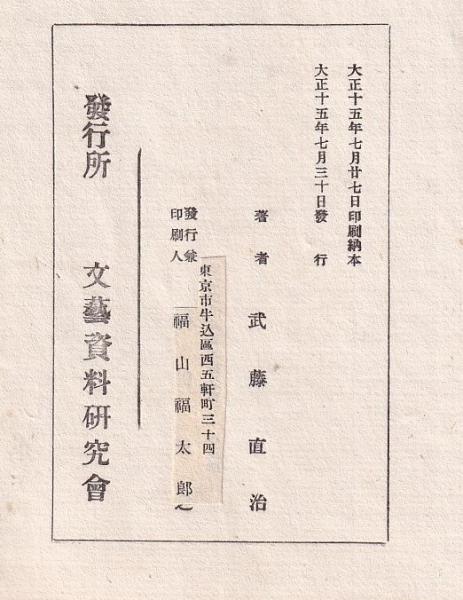 大正十五年七月廿七日印刷納本
大正十五年七月三十日發行
著者 武藤直治
東京市牛込區西五軒町三十四
發行兼
印刷人 福山福太郎
發行所 文藝資料研究會